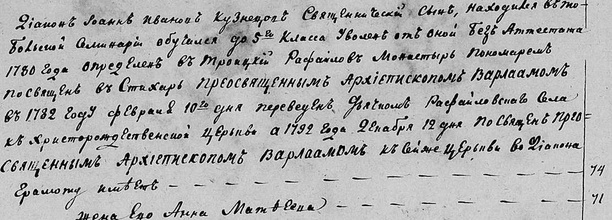 Діаконъ Іоаннъ Ивановъ Кузнецовъ Священническій Сынъ, Находился въ То-
больской Семинаріи обучался до 5го Класса Уволенъ отъ оной безъ Аттестата
1780 Года определенъ въ Троицкій Рафайловъ Монастырь Пономаремъ
Посвященъ въ Стихарь Преосвященнымъ Архіепископомъ Варлаамомъ
въ 1782 Году февраля 10го дня переведенъ Дьячкомъ Рафайловскаго Села
къ Христорождественской Церькви а 1792 Года Декабря 12 дня Посвященъ Прео-
священнымъ Архіепископомъ Варлаамомъ къ Сей же Церькви во Діакона
Грамоту имѣетъ — — — 74
Жена Его Анна Матвеева — — — 71